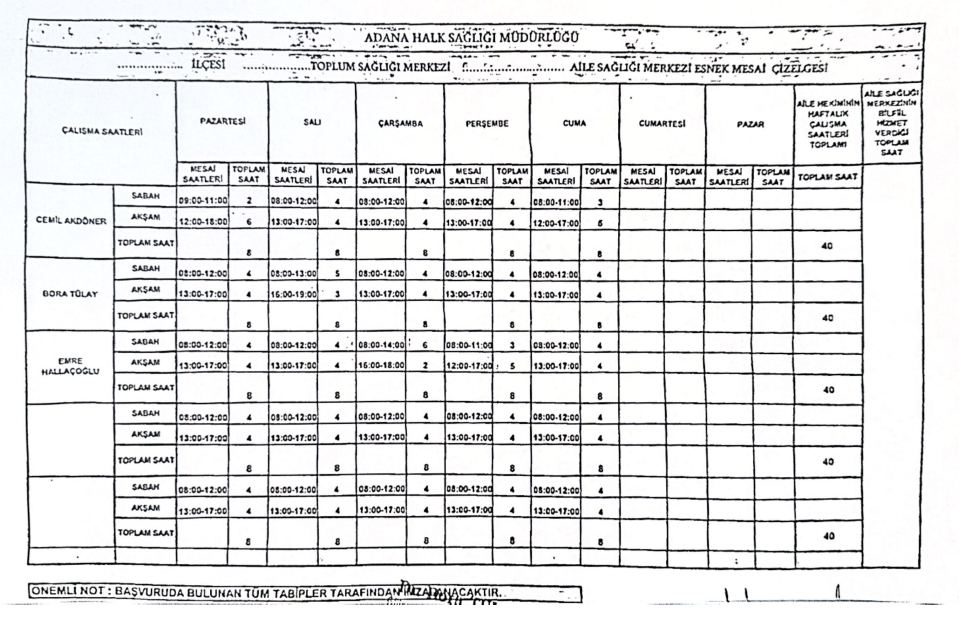 ADANA HALK SAĞLIĞI MÜDÜRLÜĞÜ
................ İLÇESİ ................TOPLUM SAĞLIĞI MERKEZİ ................ AİLE SAĞLIĞI MERKEZİ ESNEK MESAİ ÇİZELGESİ
ÇALIŞMA SAATLERİ PAZARTESİ SALI ÇARŞAMBA PERŞEMBE CUMA CUMARTESİ PAZAR AİLE HEKİMİNİN HAFTALIK ÇALIŞMA SAATLERİ TOPLAMI AİLE SAĞLIĞI MERKEZİNİN BİLFİİL HİZMET VERDİĞİ TOPLAM SAAT
MESAİ SAATLERİ TOPLAM SAAT MESAİ SAATLERİ TOPLAM SAAT MESAİ SAATLERİ TOPLAM SAAT MESAİ SAATLERİ TOPLAM SAAT MESAİ SAATLERİ TOPLAM SAAT MESAİ SAATLERİ TOPLAM SAAT MESAİ SAATLERİ TOPLAM SAAT TOPLAM SAAT
CEMİL AKDÖNER
SABAH 09:00-11:00 2 08:00-12:00 4 08:00-12:00 4 08:00-12:00 4 08:00-11:00 3
AKŞAM 12:00-18:00 6 13:00-17:00 4 13:00-17:00 4 13:00-17:00 4 12:00-17:00 5
TOPLAM SAAT 8 8 8 8 8 40
BORA TÜLAY
SABAH 08:00-12:00 4 08:00-13:00 5 08:00-12:00 4 08:00-12:00 4 08:00-12:00 4
AKŞAM 13:00-17:00 4 16:00-19:00 3 13:00-17:00 4 13:00-17:00 4 13:00-17:00 4
TOPLAM SAAT 8 8 8 8 8 40
EMRE HALLAÇOĞLU
SABAH 08:00-12:00 4 08:00-12:00 4 08:00-14:00 6 08:00-11:00 3 08:00-12:00 4
AKŞAM 13:00-17:00 4 13:00-17:00 4 16:00-18:00 2 12:00-17:00 5 13:00-17:00 4
TOPLAM SAAT 8 8 8 8 8 40
SABAH 08:00-12:00 4 08:00-12:00 4 08:00-12:00 4 08:00-12:00 4 08:00-12:00 4
AKŞAM 13:00-17:00 4 13:00-17:00 4 13:00-17:00 4 13:00-17:00 4 13:00-17:00 4
TOPLAM SAAT 8 8 8 8 8 40
SABAH 08:00-12:00 4 08:00-12:00 4 08:00-12:00 4 08:00-12:00 4 08:00-12:00 4
AKŞAM 13:00-17:00 4 13:00-17:00 4 13:00-17:00 4 13:00-17:00 4 13:00-17:00 4
TOPLAM SAAT 8 8 8 8 8 40
ÖNEMLİ NOT : BAŞVURUDA BULUNAN TÜM TABİPLER TARAFINDAN İMZALANACAKTIR.